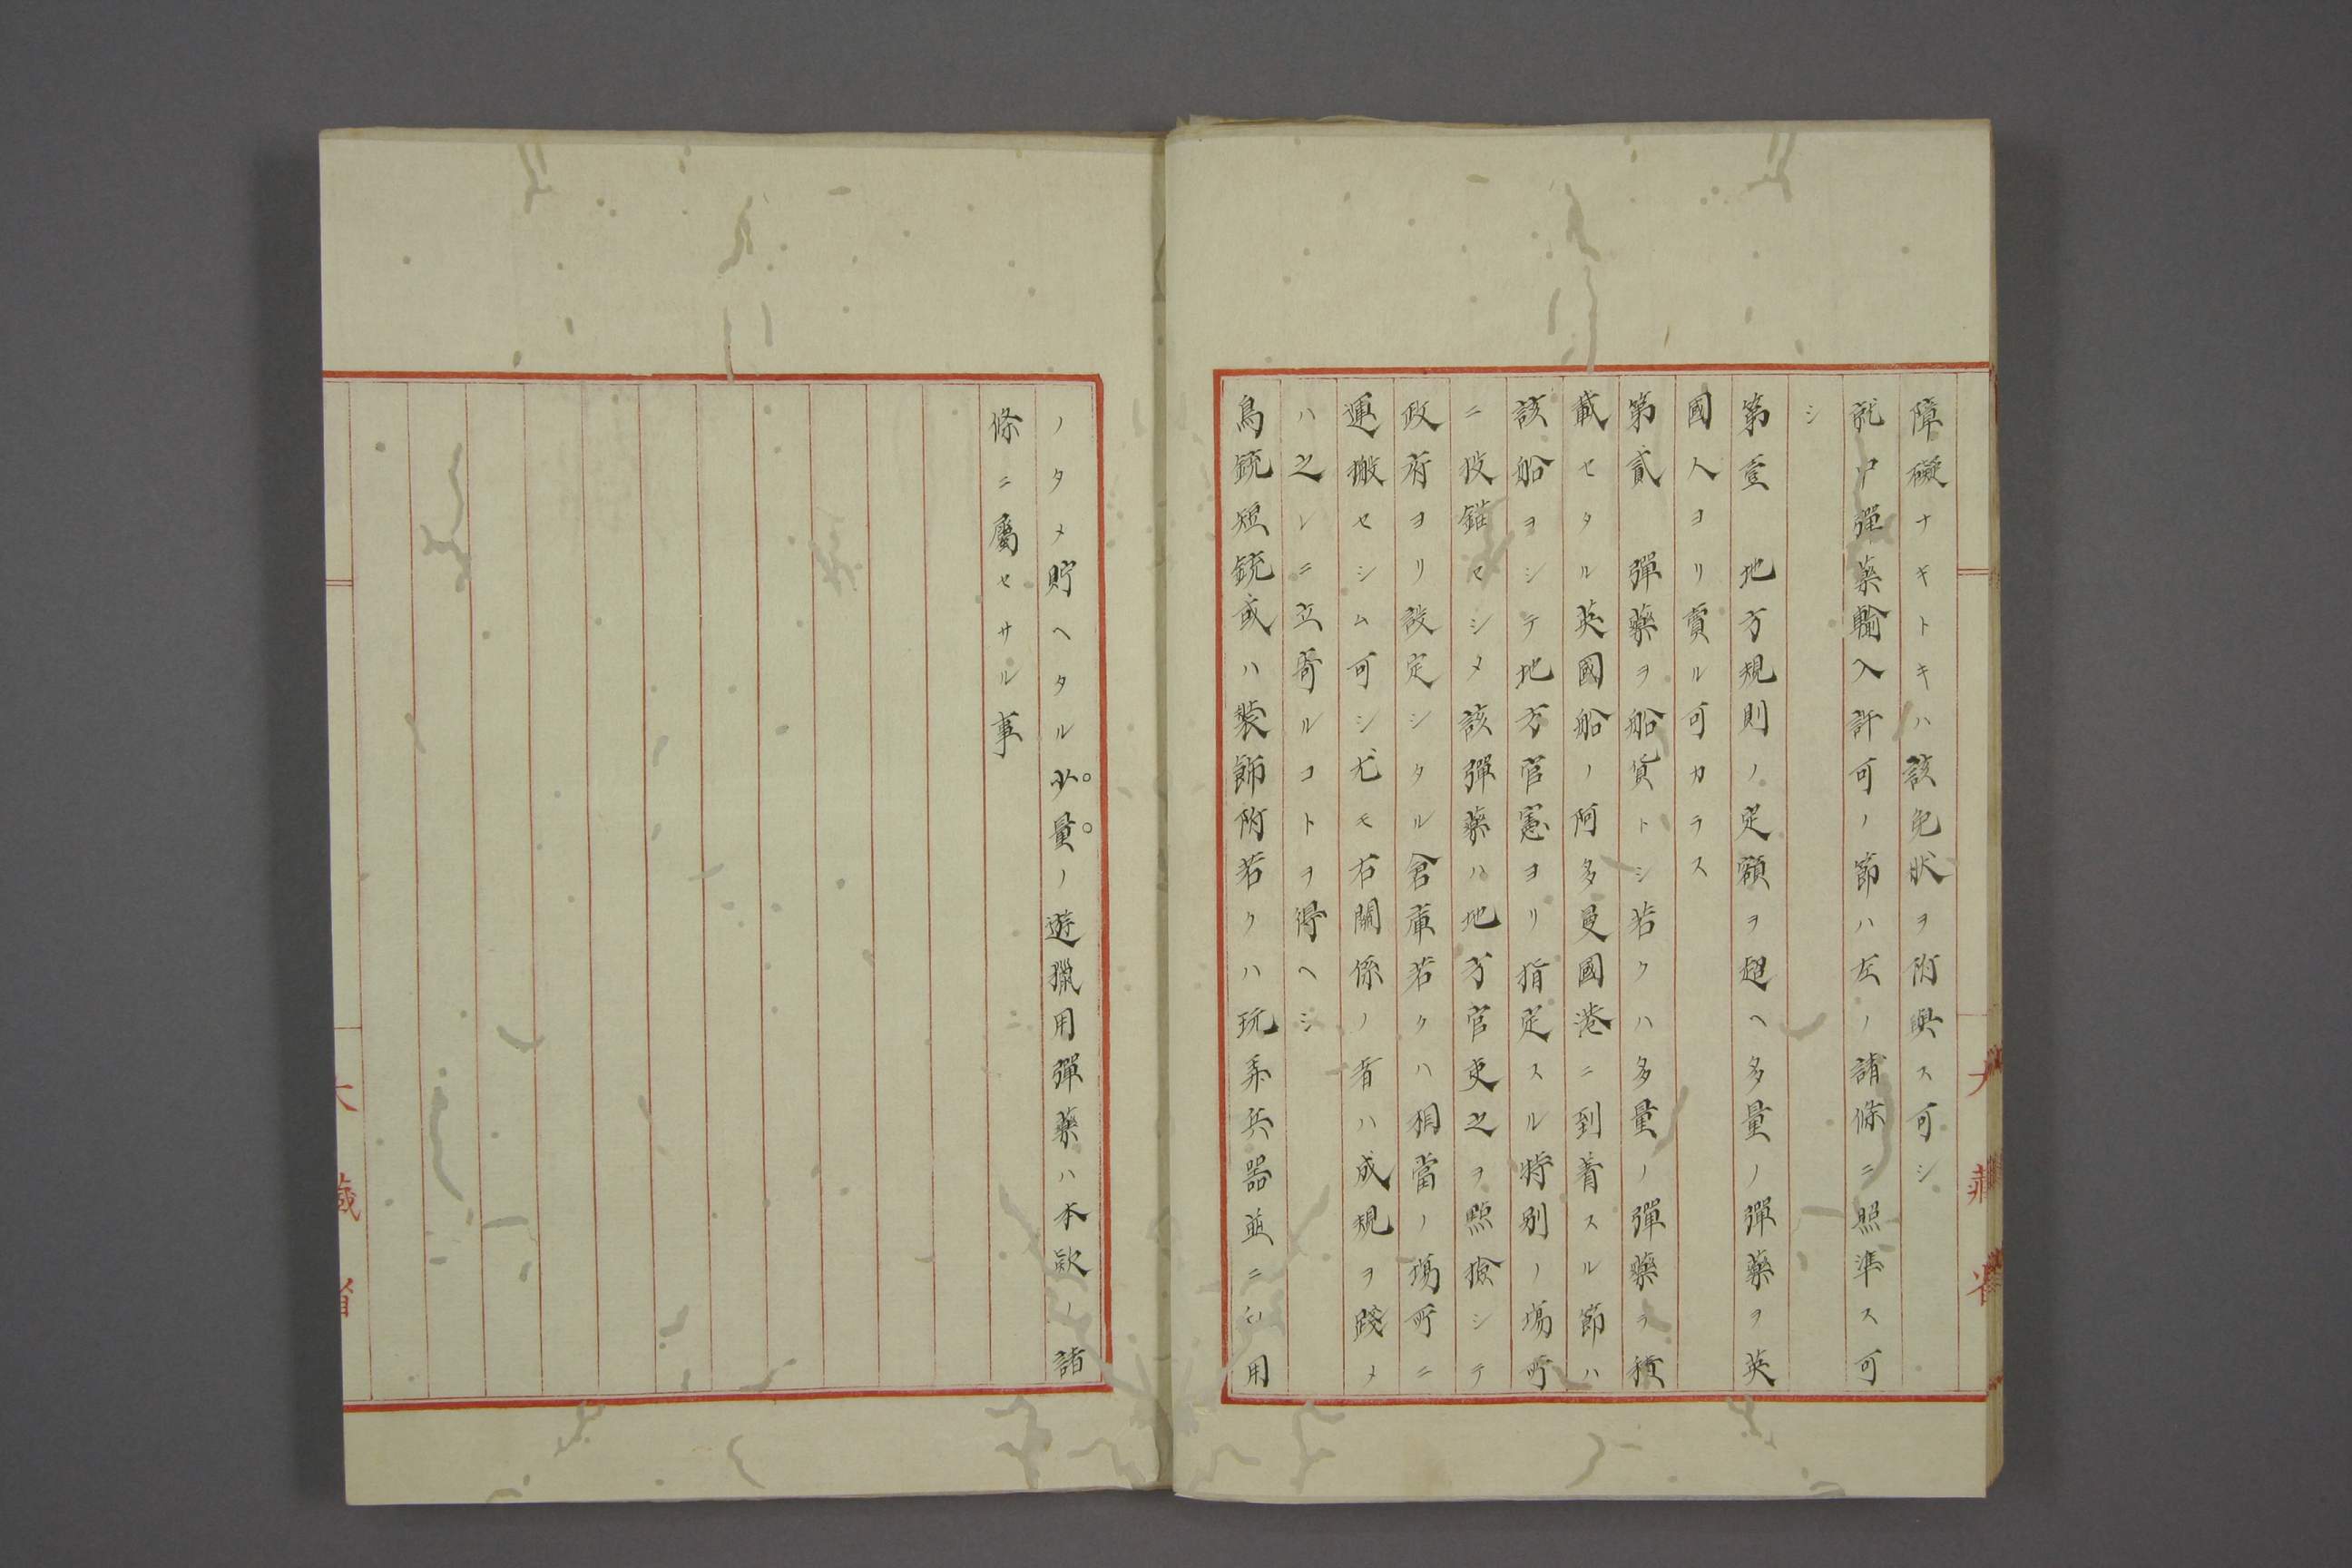 障礙ナキトキハ該免状ヲ附與ス可シ
就中彈藥輸入許可ノ節ハ左ノ諸條ニ照準ス可
シ
第壹　地方規則ノ定額ヲ超ヘ多量ノ彈藥ヲ英
國人ヨリ賣ル可カラス
第貳　彈藥ヲ船貨トシ若クハ多量ノ彈藥ヲ積
載セタル英國船ノ阿多曼國港ニ到着スル節ハ
該船ヲシテ地方官憲ヨリ指定スル特別ノ場所
ニ投錨セシメ該彈藥ハ地方官吏之ヲ照撿シテ
政府ヨリ設定シタル倉庫若クハ相當ノ場所ニ
運搬セシム可シ尤モ右關係ノ者ハ成規ヲ踐メ
ハ之レニ立寄ルコトヲ得ヘシ
鳥銃短銃或ハ裝飾附若クハ玩弄兵器並ニ自用
ノタメ貯ヘタル少量ノ遊獵用彈藥ハ本款ノ諸
條ニ屬セサル事
大藏省
大藏省